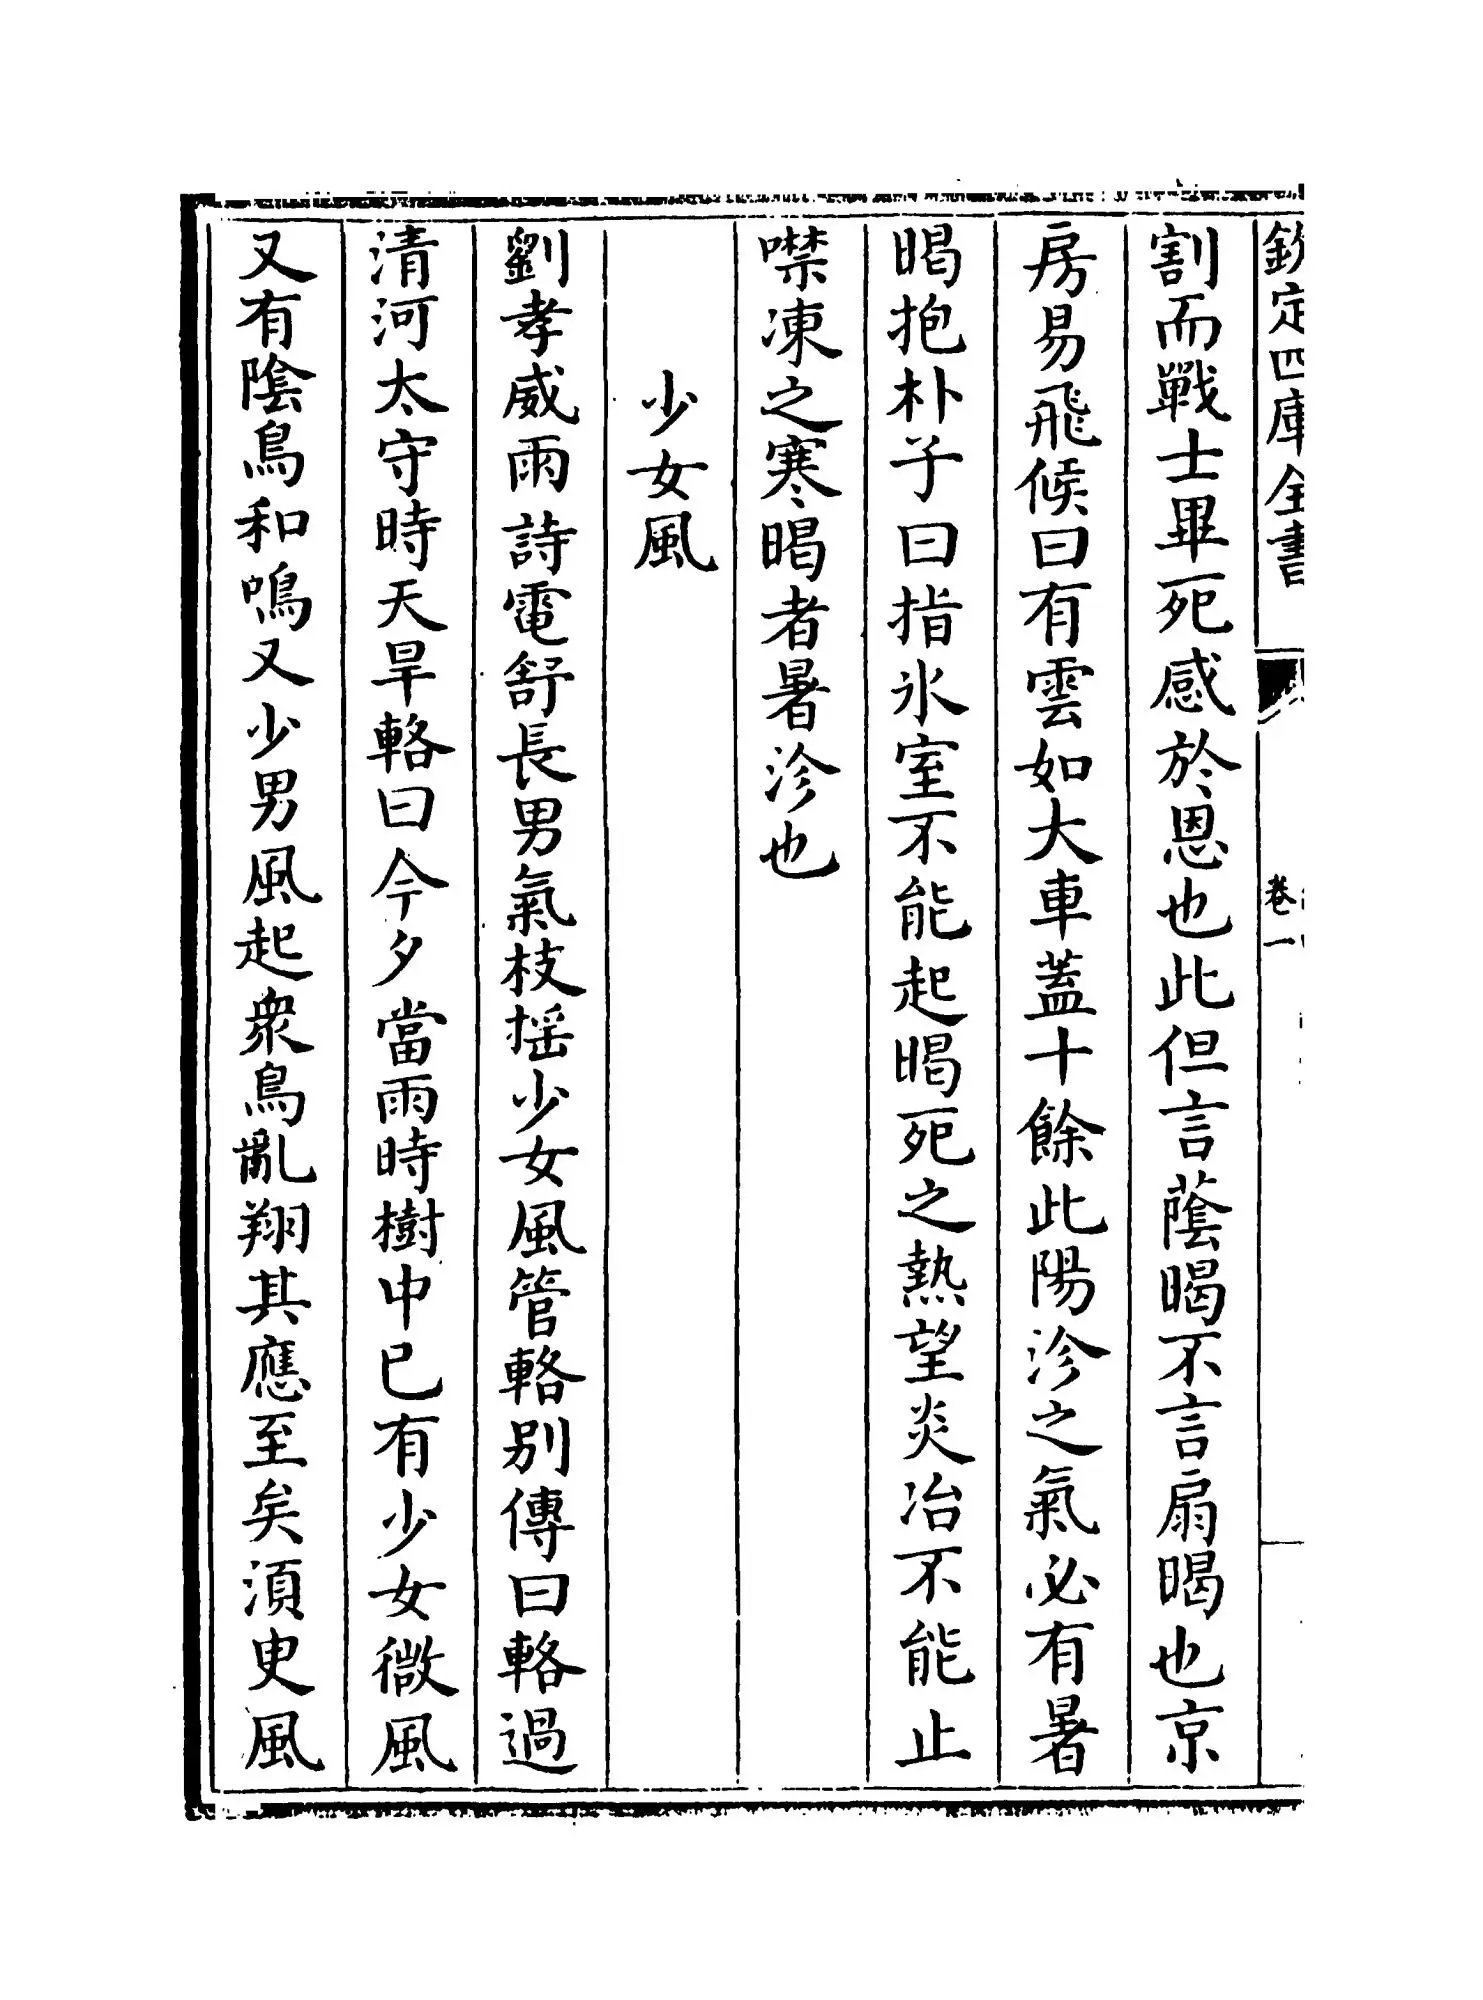 欽定四庫全書
卷一
割而戰士畢死感於恩也此但言蔭暍不言扇暍也京
房易飛候曰有雲如大車蓋十餘此陽沴之氣必有暑
暍抱朴子曰指氷室不能起暍死之熱望炎冶不能止
噤凍之寒暍者暑沴也
少女風
劉孝威雨詩電舒長男氣枝揺少女風管輅别傳曰輅過
清河太守時天旱輅曰今夕當雨時樹中已有少女微風
又有隂鳥和鳴又少男風起衆鳥亂翔其應至矣須臾風